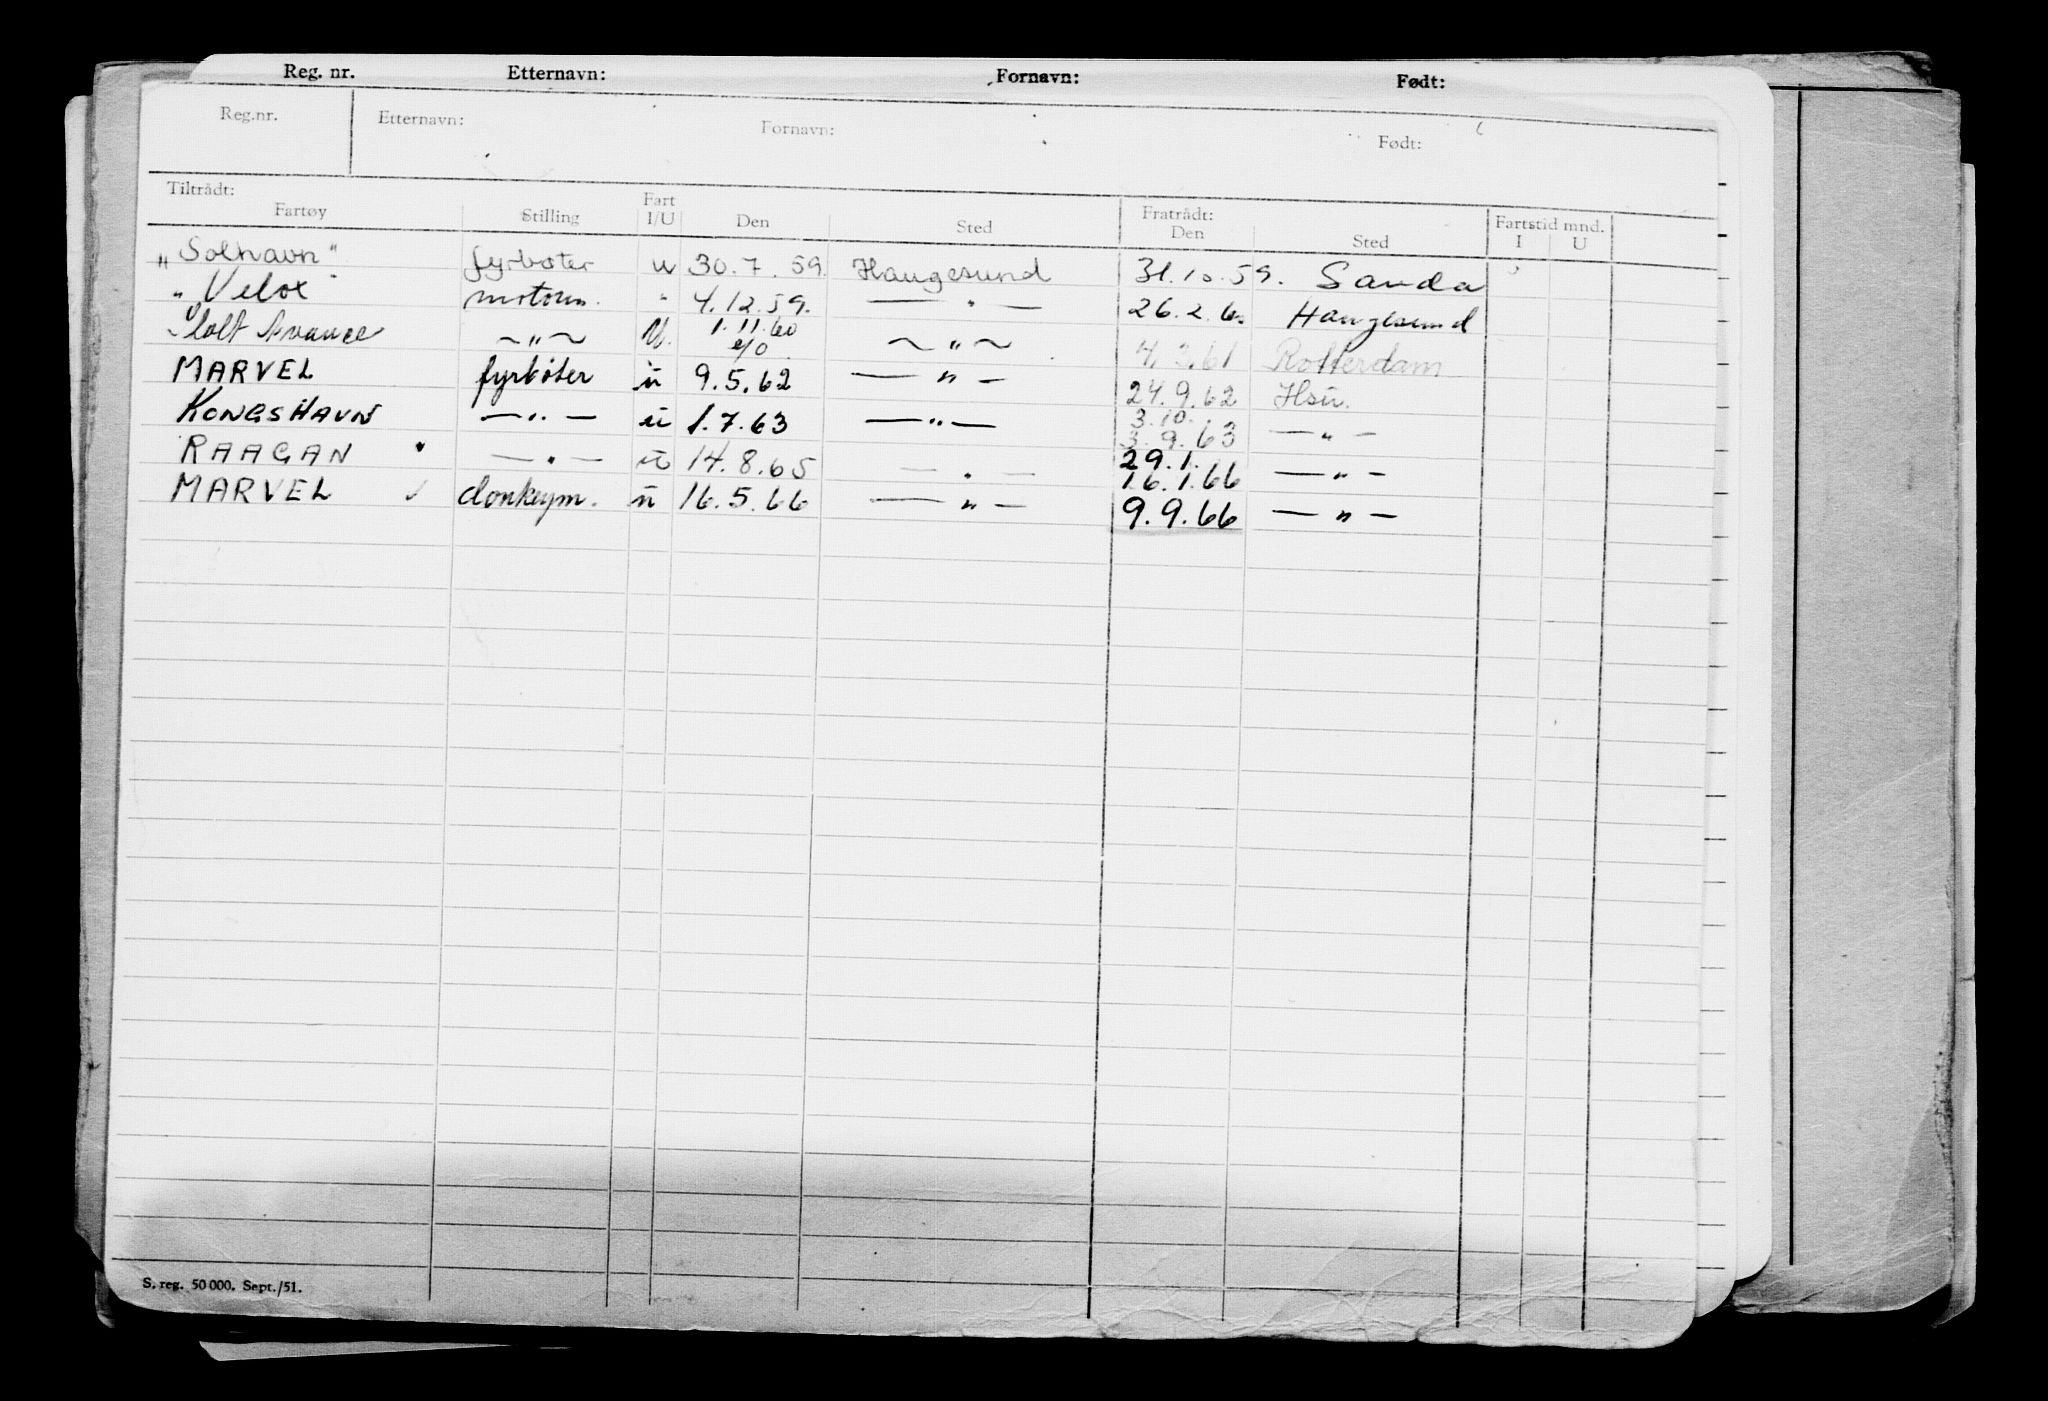 Reg. nr. Etternavn: Fornavn: Født:
Reg.nr. Etternavn: Fornavn: Født:
Tiltrådt: Fratrådt:
Fartøy Stilling Fart I/U Den Sted Den Sted Fartstid mnd. I U
„Solhavn" fyrbøter u 30.7.59. Haugesund 31.10.59. Sanda
"Velox" motorm. " 4.12.59. — " — 26.2.60 Haugesund
Avance ~ " ~ U. 1.11.60 ~ " ~ 4.3.61 Rotterdam
MARVEL fyrbøter ū 9.5.62 — " — 24.9.62 Hsū.
KONGSHAVN — " — ū 1.7.63 — " — 3.10. 3.9.63 — " —
RAAGAN — " — ū 14.8.65 — " — 29.1. 16.1.66 — " —
MARVEL ✓ donkeym. ū 16.5.66 — " — 9.9.66 — " —
S. reg. 50 000. Sept./51.